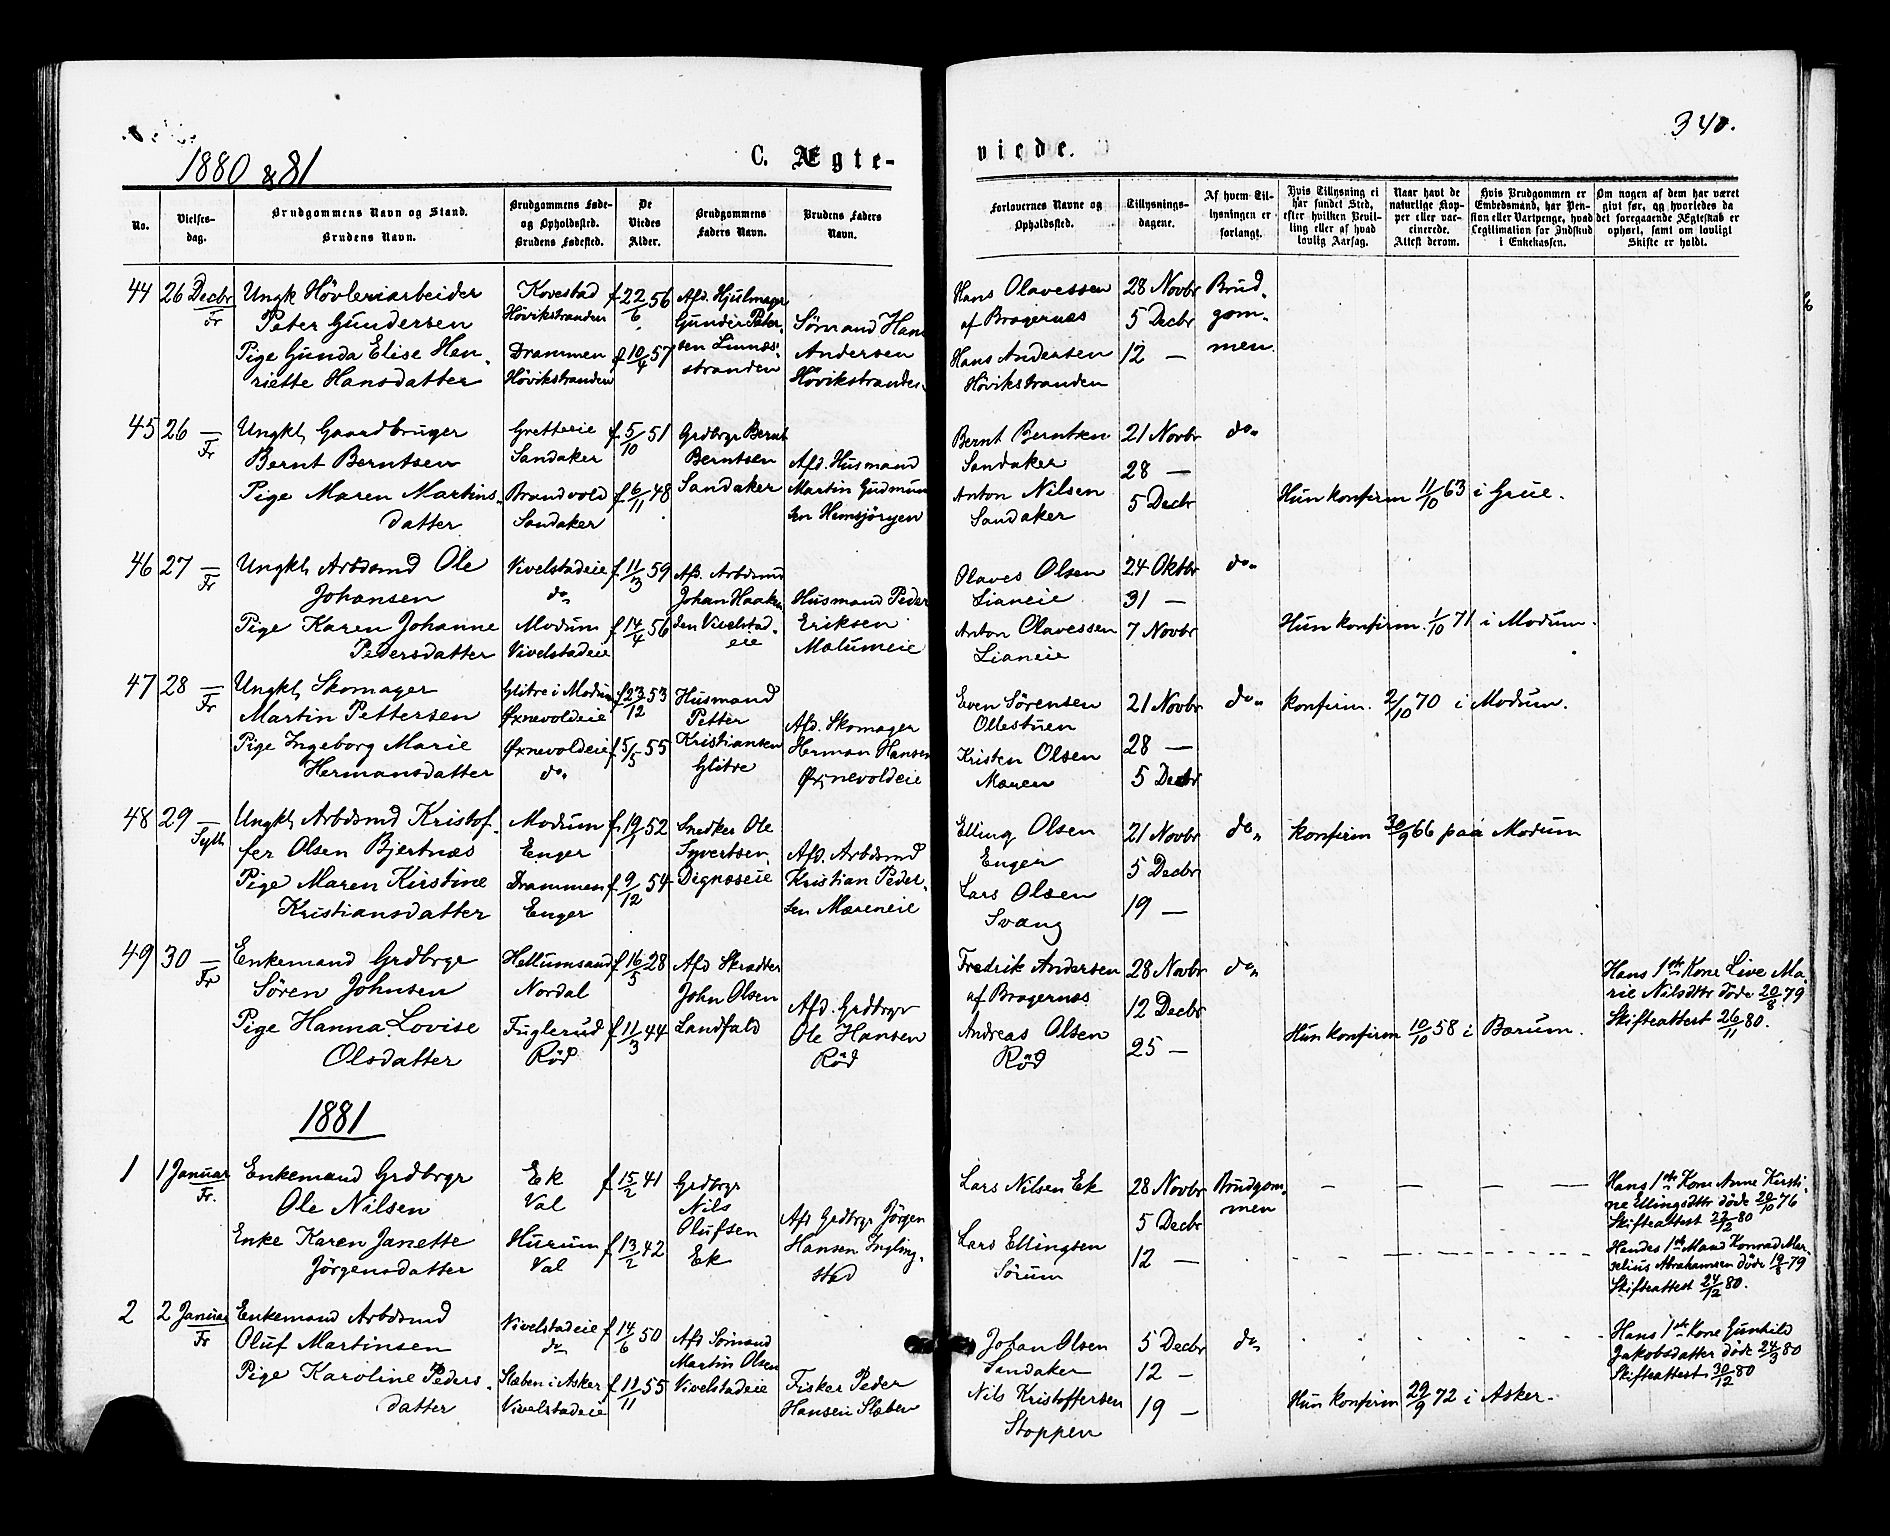 340.
1880 & 81
C. Ægte-
viede.
No.
Vielses-
dag.
Brudgommens Navn og Stand.
Brudens Navn.
Brudgommens Føde-
og Opholdssted.
Brudens Fødested.
De
Viedes
Alder.
Brudgommens
Faders Navn.
Brudens Faders
Navn.
Forlovernes Navne og
Opholdssted.
Tillysnings-
dagene.
Af hvem Til-
lysningen er
forlangt.
Hvis Tillysning ei
har fundet Sted,
efter hvilken Bevil-
ling eller af hvad
lovlig Aarsag.
Naar havt de
naturlige Kop-
per eller vac-
cinerede.
Attest derom.
Hvis Brudgommen er
Embedsmand, har Pen-
sion eller Vartpenge, hvad
Legitimation for Indskud
i Enkekassen.
Om nogen af dem har været
gift før, og hvorledes da
det foregaaende Ægteskab er
ophørt, samt om lovligt
Skifte er holdt.
44
26 Decbr
Fr
Ungk Hövleriarbeider
Peter Gundersen
Pige Gunda Elise Hen-
riette Hansdatter
Kovestad
Hövikstranden
Drammen
Hövikstranden
f 22/6 56
f 10/4 57
Afd. Hjulmager
Gunder Peter-
sen Linnæs-
stranden
Sömand Hans
Andersen
Hövikstranden
Hans Olavessen
af Bragernæs
Hans Andersen
Hövikstranden
28 Novbr
5 Decbr
12 —
Brud-
gom-
men.
45
26 —
Fr
Ungkl Gaardbruger
Bernt Berntsen
Pige Maren Martins-
datter
Gretterie
Sandaker
Brandvold
Sandaker
f 5/10 51
f 6/11 48
Grdbrgr Bernt
Berntsen
Sandaker
Afd. Husmand
Martin Gudmun
sen Hemsjörgen
Bernt Berntsen
Sandaker
Anton Nilsen
Sandaker
21 Novbr
28 —
5 Decbr
do.
Hun konfirm 11/10 63 i Grue.
46
27 —
Fr
Ungkl Arbdsmd Ole
Johansen
Pige Karen Johanne
Pedersdatter
Vivelstadeie
do.
Modum
Vivelstadeie
f 11/3 59
f 14/4 56
Afd. Arbdsmd
Johan Haaken
sen Vivelstad-
eie
Husmand Peder
Eriksen
Malumeie
Olaves Olsen
Lianeie
Anton Olavessen
Lianeie
24 Oktbr
31 —
7 Novbr
do.
Hun konfirm. 1/10 71 i Modum.
47
28 —
Fr
Ungkl Skomager
Martin Pettersen
Pige Ingeborg Marie
Hermansdatter
Glitre i Modum
Öxnevoldeie
Öxnevoldeie
do.
f 23/12 53
f 5/5 55
Husmand
Petter
Kristiansen
Glitre
Afd. Skomager
Herman Hansen
Öxnevoldeie
Even Sörensen
Ollestuen
Kristen Olsen
Mæren
21 Novbr
28 —
5 Decbr
do.
konfirm. 2/10 70 i Modum.
48
29 —
Syll
Ungkl Arbdsmd Kristof-
fer Olsen Bjertnæs
Pige Maren Kirstine
Kristiansdatter
Modum
Enger
Drammen
Enger
f 19/1 52
f 9/12 54
Snedker Ole
Syvertsen
Dignæseie
Afd. Arbdsmd
Kristian Peder-
sen Mæreneie
Elling Olsen
Enger
Lars Olsen
Svang
21 Novbr
5 Decbr
19 —
do.
konfirm 30/9 66 paa Modum
49
30 —
Fr
Enkemand Grdbrgr
Sören Johnsen
Pige Hanna Lovise
Olsdatter
Hellumsand
Nordal
Fuglerud
Röd
f 16/5 28
f 11/3 44
Afd Skrædder
John Olsen
Landfald
Afd. Grdbrgr
Ole Hansen
Röd
Fredrik Andersen
af Bragernæs
Andreas Olsen
Röd
28 Novbr
12 Decbr
25 —
do.
Hun konfirm 10/10 58 i Bærum.
Hans 1ste Kone Live Ma-
rie Nilsdtr döde 20/8 79
Skifteattest 26/11 80.
1881
1
1 Januar
Fr.
Enkemand Grdbrgr
Ole Nilsen
Enke Karen Janette
Jörgensdatter
Ek
Val
Hurum
Val
f 15/2 41
f 13/2 42
Grdbrgr
Nils
Olufsen
Ek
Afd Grdbrgr Jörgen
Hansen Ingling-
stad
Lars Nilsen Ek
Lars Ellingsen
Sörum
28 Novbr
5 Decbr
12 —
Brudgom-
men
Hans 1ste Kone Anne Kirsti-
ne Ellingsdtr döde 20/10 76
Skifteattest 22/12 80
Hendes 1ste Mand Konrad Mar-
selius Abrahamsen döde 19/8 79
Skifteattest 24/12 80.
2
2 Januar
Fr
Enkemand Arbdsmd
Oluf Martinsen
Pige Karoline Peders-
datter
Vivelstadeie
do
Slæben i Asker
Vivelstadeie
f 14/6 50
f 11/11 55
Afd Sömand
Martin Olsen
Vivelstadeie
Fisker Peder
Hansen Slæben
Johan Olsen
Sandaker
Nils Kristoffersen
Stoppen
5 Decbr
12 —
19 —
do
Hun konfirm 29/9 72 i Asker.
Hans 1ste Kone Gunhild
Jakobsdatter döde 24/3 80
Skifteattest 30/12 80